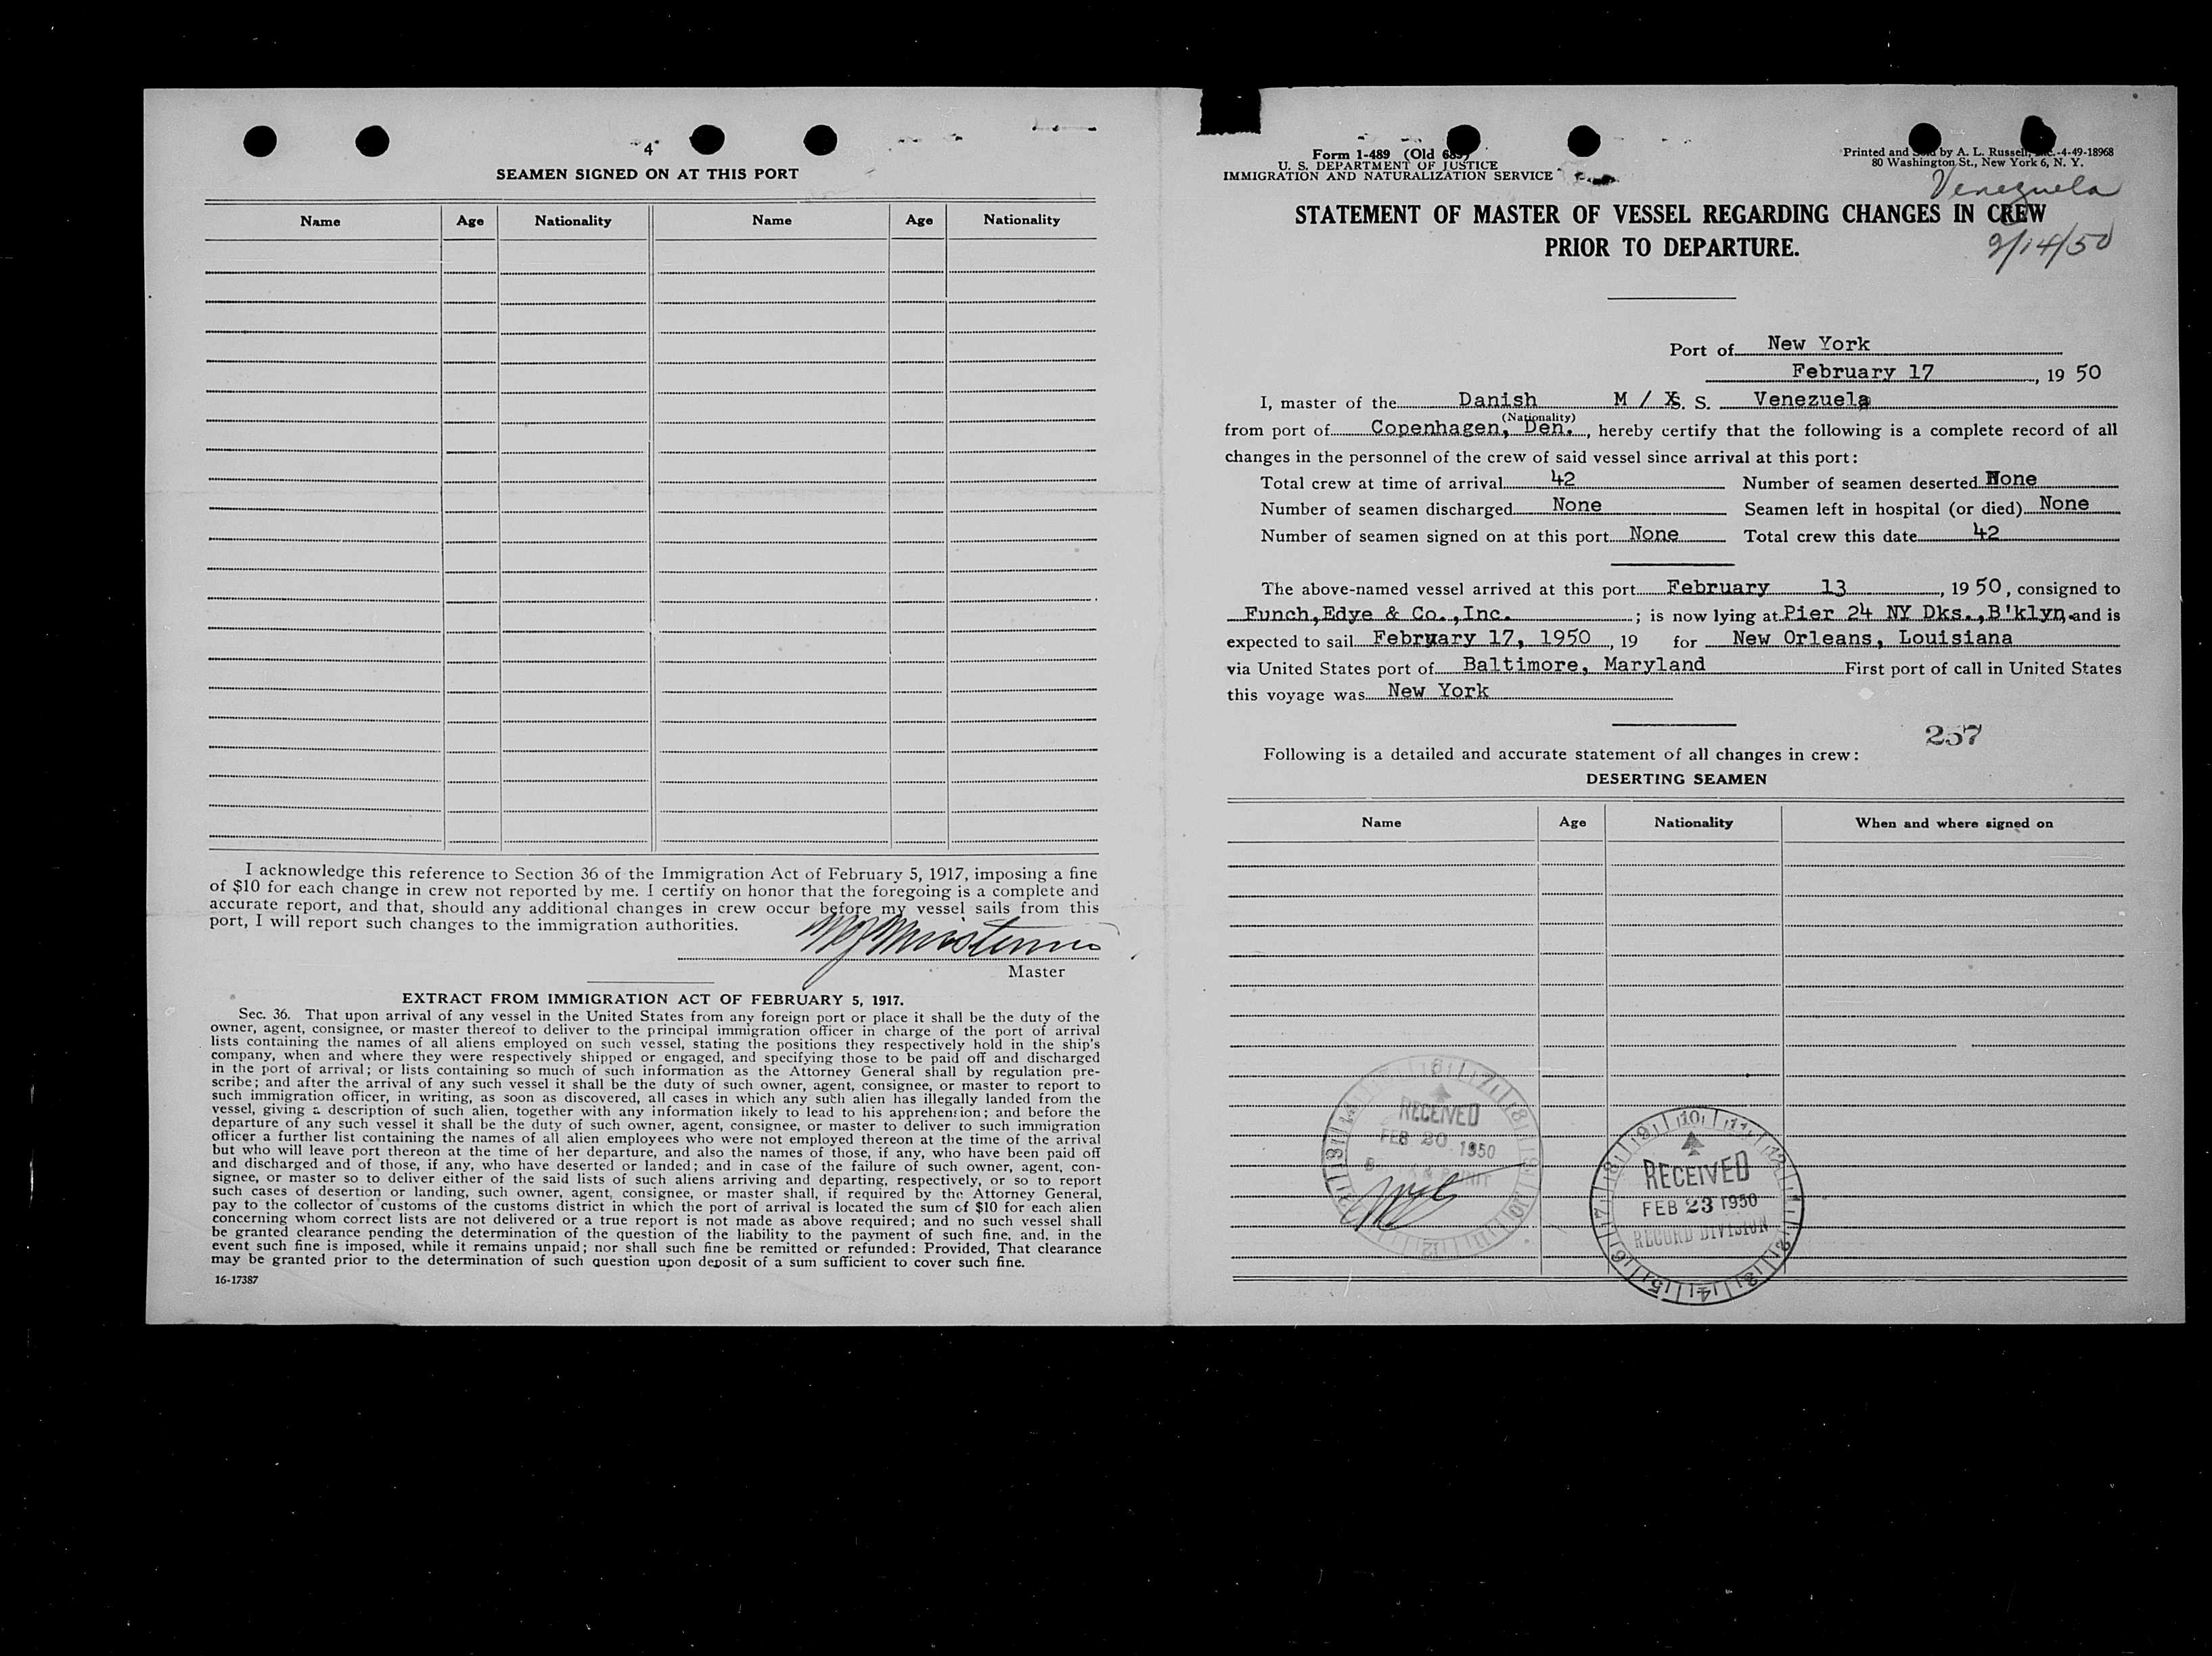 4
SEAMEN SIGNED ON AT THIS PORT
Name Age Nationality Name Age Nationality
I acknowledge this reference to Section 36 of the Immigration Act of February 5, 1917, imposing a fine
of $10 for each change in crew not reported by me. I certify on honor that the foregoing is a complete and
accurate report, and that, should any additional changes in crew occur before my vessel sails from this
port, I will report such changes to the immigration authorities.
Master
EXTRACT FROM IMMIGRATION ACT OF FEBRUARY 5, 1917.
Sec. 36. That upon arrival of any vessel in the United States from any foreign port or place it shall be the duty of the
owner, agent, consignee, or master thereof to deliver to the principal immigration officer in charge of the port of arrival
lists containing the names of all aliens employed on such vessel, stating the positions they respectively hold in the ship's
company, when and where they were respectively shipped or engaged, and specifying those to be paid off and discharged
in the port of arrival; or lists containing so much of such information as the Attorney General shall by regulation pre-
scribe; and after the arrival of any such vessel it shall be the duty of such owner, agent, consignee, or master to report to
such immigration officer, in writing, as soon as discovered, all cases in which any such alien has illegally landed from the
vessel, giving a description of such alien, together with any information likely to lead to his apprehension; and before the
departure of any such vessel it shall be the duty of such owner, agent, consignee, or master to deliver to such immigration
officer a further list containing the names of all alien employees who were not employed thereon at the time of the arrival
but who will leave port thereon at the time of her departure, and also the names of those, if any, who have been paid off
and discharged and of those, if any, who have deserted or landed; and in case of the failure of such owner, agent, con-
signee, or master so to deliver either of the said lists of such aliens arriving and departing, respectively, or so to report
such cases of desertion or landing, such owner, agent, consignee, or master shall, if required by the Attorney General,
pay to the collector of customs of the customs district in which the port of arrival is located the sum of $10 for each alien
concerning whom correct lists are not delivered or a true report is not made as above required; and no such vessel shall
be granted clearance pending the determination of the question of the liability to the payment of such fine, and, in the
event such fine is imposed, while it remains unpaid; nor shall such fine be remitted or refunded: Provided, That clearance
may be granted prior to the determination of such question upon deposit of a sum sufficient to cover such fine.
16-17387
Form I-489 (Old 689)
U. S. DEPARTMENT OF JUSTICE
IMMIGRATION AND NATURALIZATION SERVICE
Printed and Sold by A. L. Russell, Inc.-4-49-18968
80 Washington St., New York 6, N. Y.
Venezuela
STATEMENT OF MASTER OF VESSEL REGARDING CHANGES IN CREW
PRIOR TO DEPARTURE.
2/14/50
Port of New York
February 17, 19 50
I, master of the Danish M / S. S. Venezuela
(Nationality)
from port of Copenhagen, Den., hereby certify that the following is a complete record of all
changes in the personnel of the crew of said vessel since arrival at this port:
Total crew at time of arrival 42 Number of seamen deserted None
Number of seamen discharged None Seamen left in hospital (or died) None
Number of seamen signed on at this port None Total crew this date 42
The above-named vessel arrived at this port February 13, 19 50, consigned to
Funch,Edye & Co.,Inc. ; is now lying at Pier 24 NY Dks.,B'klyn, and is
expected to sail February 17, 1950, 19 for New Orleans, Louisiana
via United States port of Baltimore, Maryland First port of call in United States
this voyage was New York
257
Following is a detailed and accurate statement of all changes in crew:
DESERTING SEAMEN
Name Age Nationality When and where signed on
RECEIVED
FEB 20 1950
RECEIVED
FEB 23 1950
RECORD DIVISION